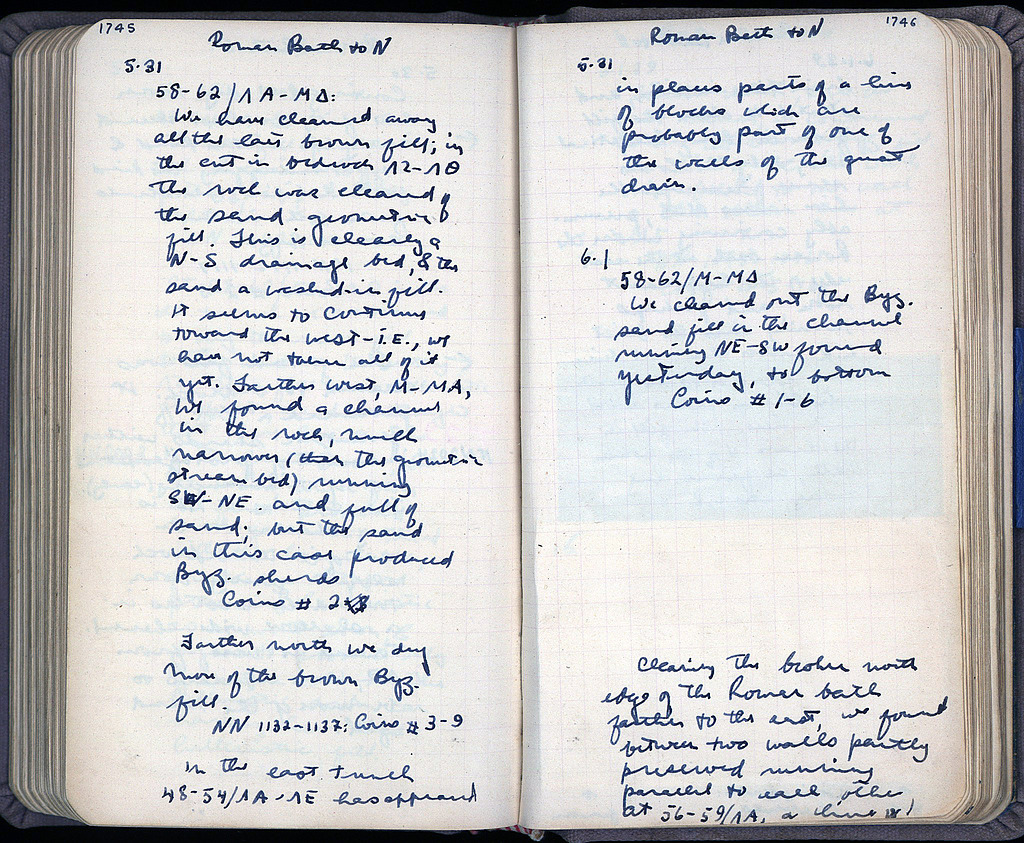 1745
Roman Bath to N
5.31
58-62/ΛA-MΔ:
We have cleaned away
all the late brown fill; in
the cut in bedrock Λ2-ΛΘ
the rock was cleaned of
the sand geometric
fill. This is clearly a
N-S drainage bed, & the
sand a washed-in fill.
It seems to continue
toward the west-i.E., we
have not taken all of it
yet. Farther west, M-MA,
we found a channel
in the rock, much
narrower (than the geometric
stream bed) running
SW-NE. and full of
sand; but the sand
in this case produced
Byz. sherds
Coins # 2
Farther north we dug
more of the brown Byz.
fill.
NN 1132-1137: Coins # 3-9
in the east trench
48-54/ΛA-ΛE has appeared
1746
Roman Bath to N
5.31
in places parts of a line
of blocks which are
probably part of one of
the walls of the great
drain.
6.1
58-62/M-MΔ
We cleaned out the Byz.
sand fill in the channel
running NE-SW found
yesterday, to bottom
Coins # 1-6
Clearing the broken north
edge of the Roman bath
farther to the east, we found
between two walls partly
preserved running
parallel to each other
at 56-59/ΛA, a